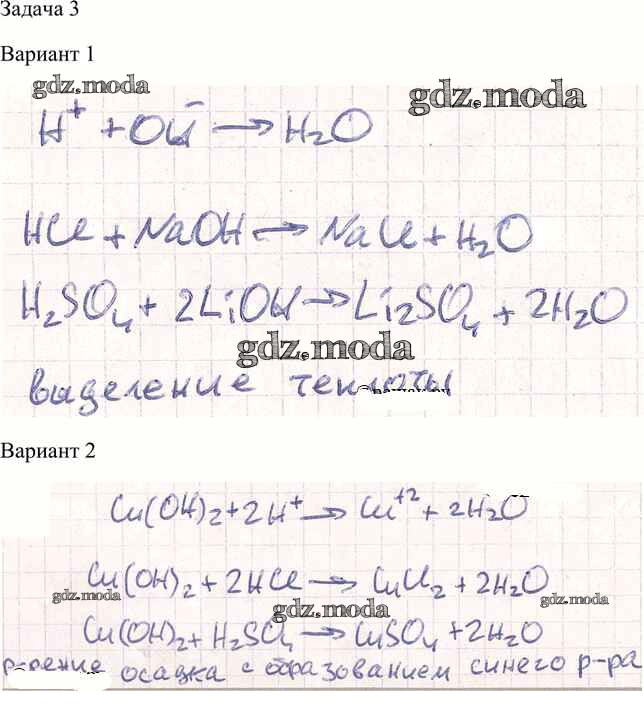 Задача 3
Вариант 1
gdz.moda gdz.moda
H⁺ + OH⁻ → H₂O
HCl + NaOH → NaCl + H₂O
H₂SO₄ + 2LiOH → Li₂SO₄ + 2H₂O
gdz.moda
выделение теплоты
Вариант 2
Cu(OH)₂ + 2H⁺ → Cu⁺² + 2H₂O
Cu(OH)₂ + 2HCl → CuCl₂ + 2H₂O
gdz.moda gdz.moda gdz.moda
Cu(OH)₂ + H₂SO₄ → CuSO₄ + 2H₂O
р-рение осадка с образованием синего р-ра